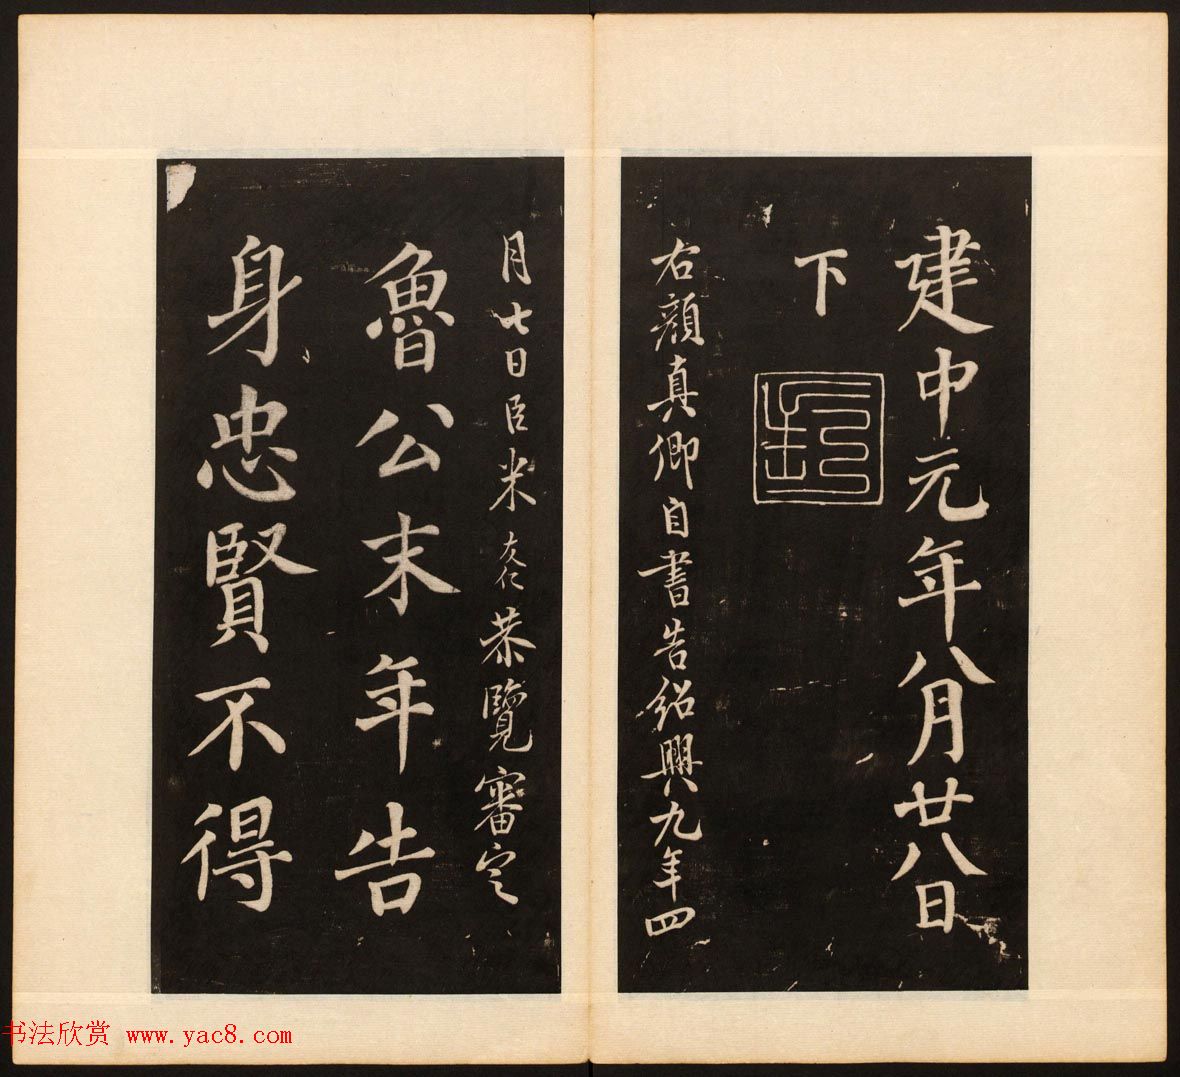 建中元年八月廿八日
下
右顏真卿自書告紹興九年四
月七日臣米友仁恭覽審定
魯公末年告
身忠賢不得
书法欣赏 www.yac8.com